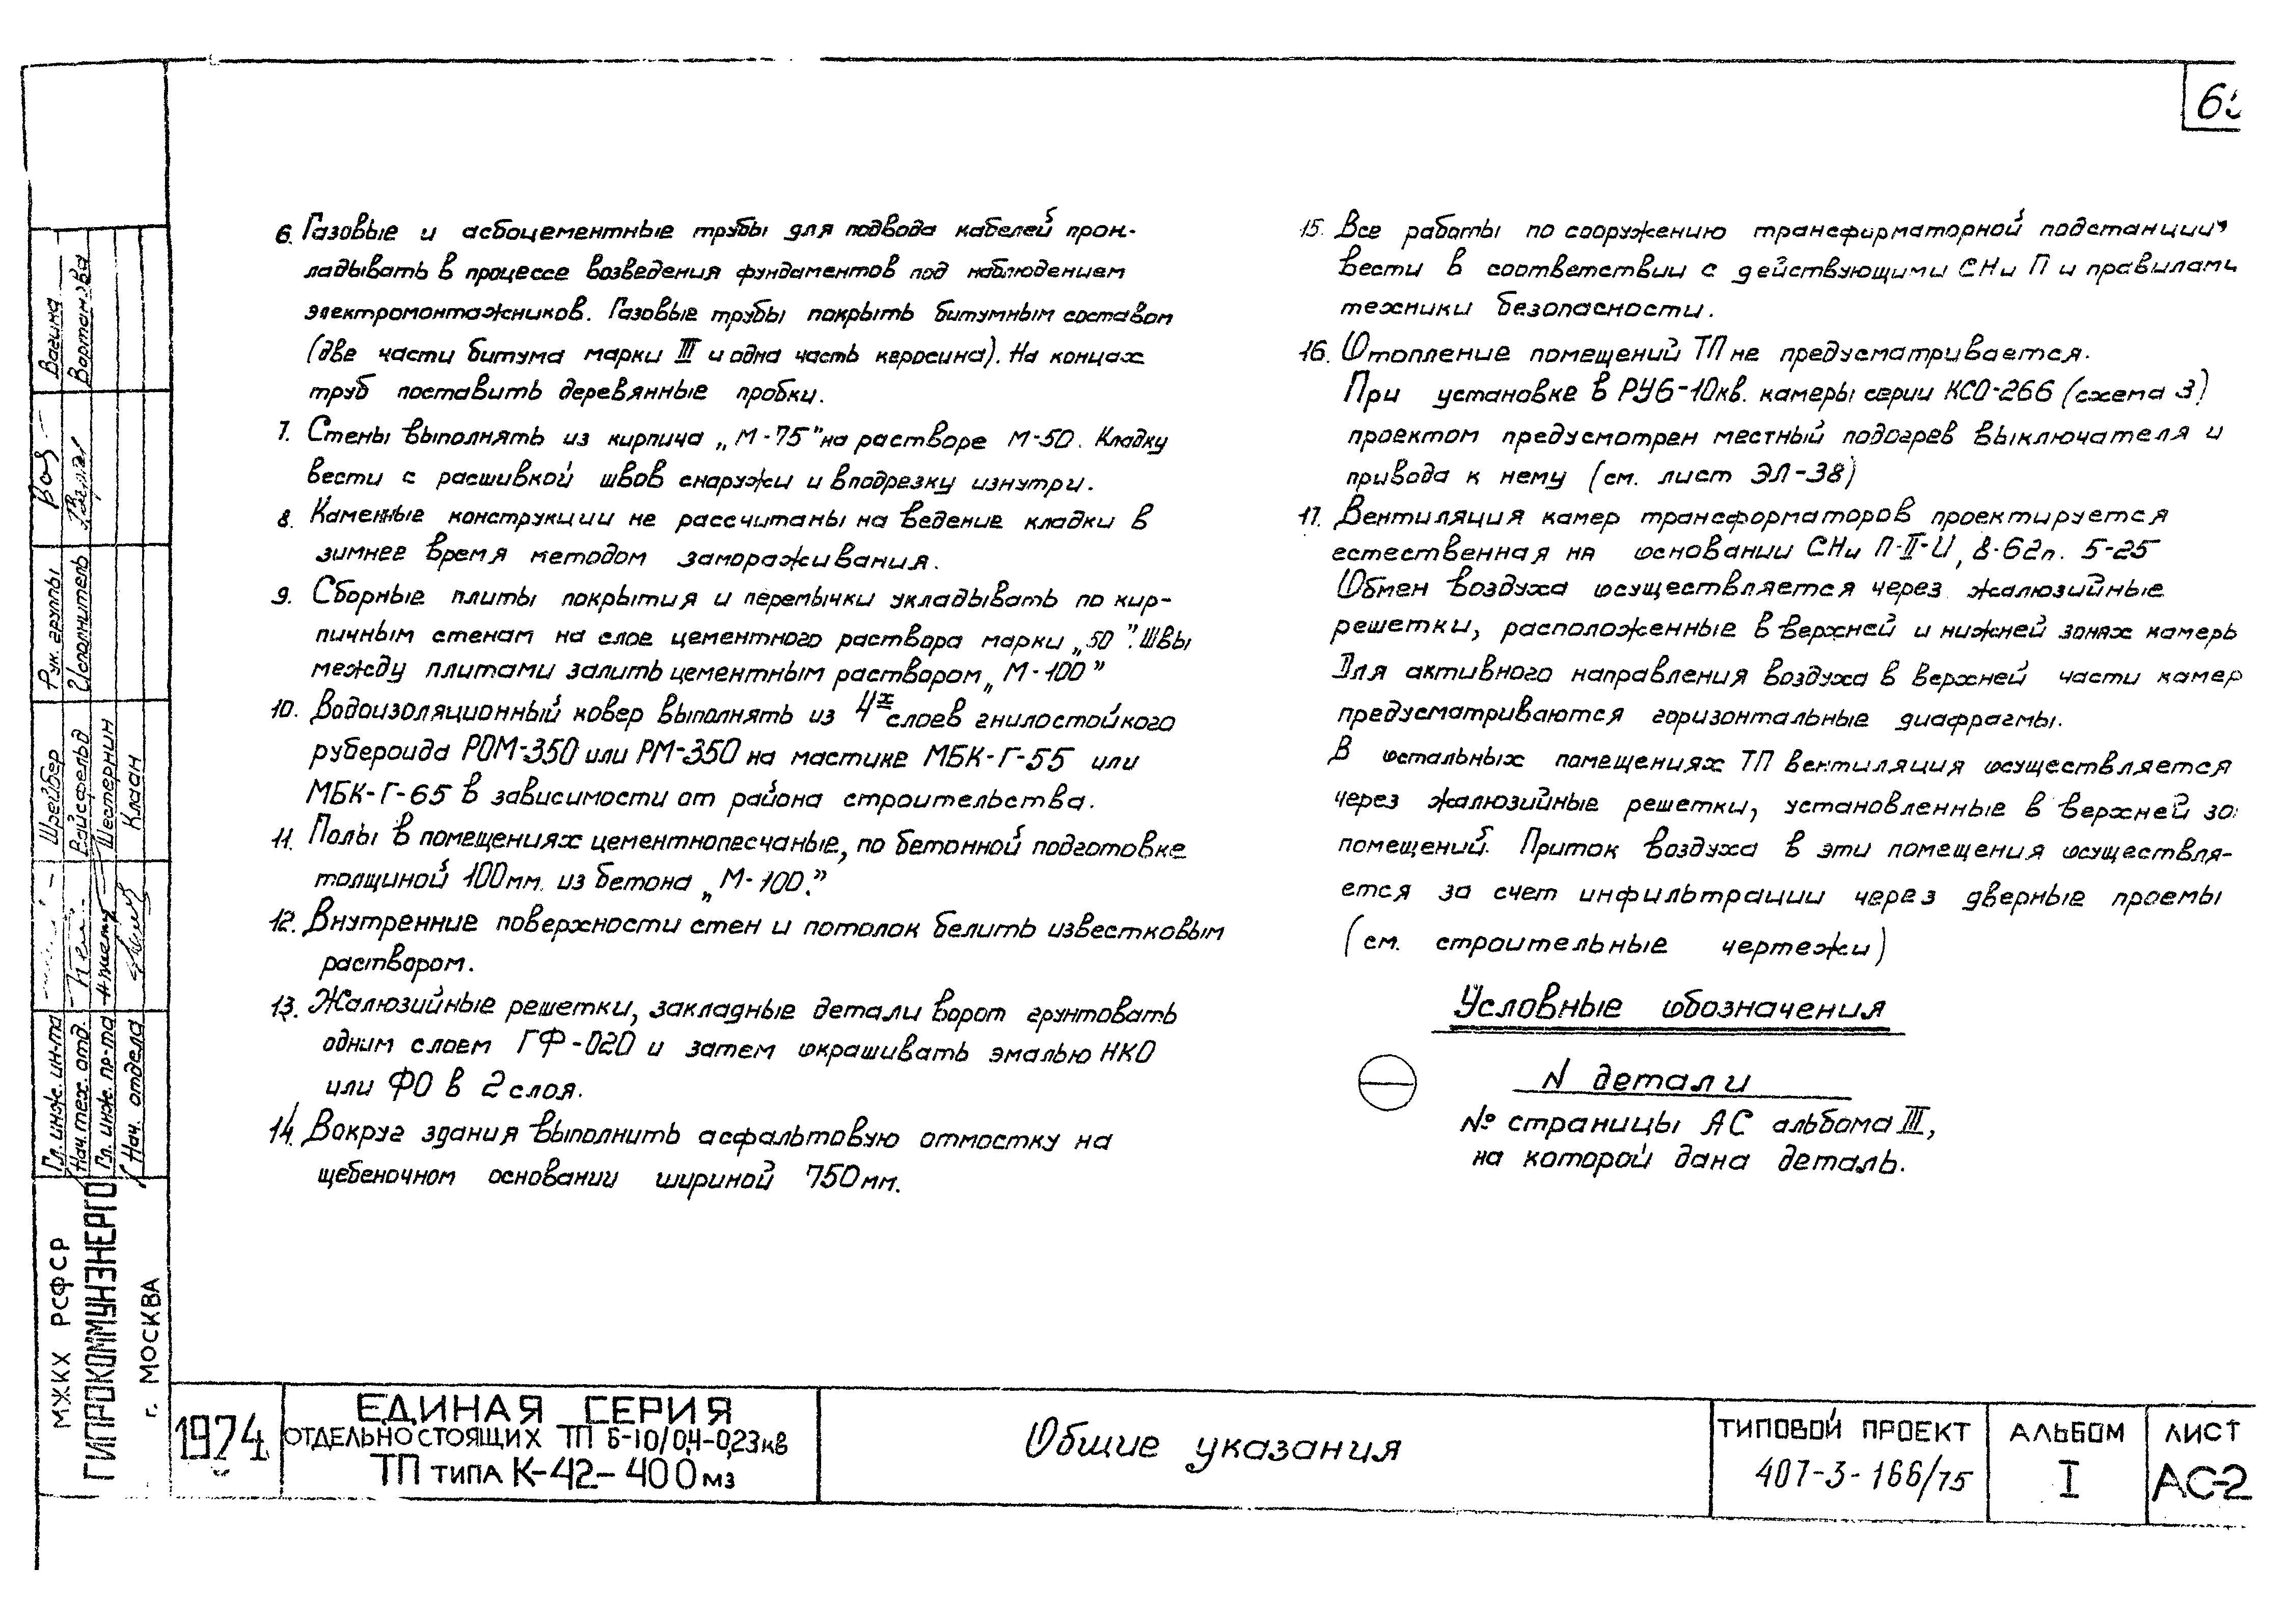 6. Газовые и асбоцементные трубы для подвода кабелей прок-
ладывать в процессе возведения фундаментов под наблюдением
электромонтажников. Газовые трубы покрыть битумным составом
(две части битума марки III и одна часть керосина). На концах
труб поставить деревянные пробки.
7. Стены выполнять из кирпича „М-75" на растворе М-50. Кладку
вести с расшивкой швов снаружи и вподрезку изнутри.
8. Каменные конструкции не рассчитаны на ведение кладки в
зимнее время методом замораживания.
9. Сборные плиты покрытия и перемычки укладывать по кир-
пичным стенам на слое цементного раствора марки „50". Швы
между плитами залить цементным раствором „М-100"
10. Водоизоляционный ковер выполнять из 4х слоев гнилостойкого
рубероида РОМ-350 или РМ-350 на мастике МБК-Г-55 или
МБК-Г-65 в зависимости от района строительства.
11. Полы в помещениях цементнопесчаные, по бетонной подготовке
толщиной 100мм. из бетона „М-100."
12. Внутренние поверхности стен и потолок белить известковым
раствором.
13. Жалюзийные решетки, закладные детали ворот грунтовать
одним слоем ГФ-020 и затем окрашивать эмалью НКО
или ФО в 2 слоя.
14. Вокруг здания выполнить асфальтовую отмостку на
щебеночном основании шириной 750мм.
15. Все работы по сооружению трансформаторной подстанции
вести в соответствии с действующими СНиП и правилами
техники безопасности.
16. Отопление помещений ТП не предусматривается.
При установке в РУ6-10кв. камеры серии КСО-266 (схема 3)
проектом предусмотрен местный подогрев выключателя и
привода к нему (см. лист ЭЛ-38)
17. Вентиляция камер трансформаторов проектируется
естественная на основании СНиП-II-И, 8-62п. 5-25
Обмен воздуха осуществляется через жалюзийные
решетки, расположенные в верхней и нижней зонах камеры
Для активного направления воздуха в верхней части камер
предусматриваются горизонтальные диафрагмы.
В остальных помещениях ТП вентиляция осуществляется
через жалюзийные решетки, установленные в верхней зо
помещений. Приток воздуха в эти помещения осуществля-
ется за счет инфильтрации через дверные проемы
(см. строительные чертежи)
Условные обозначения
N детали
№ страницы АС альбома III,
на которой дана деталь.
Вагина
Вартанова
Рук. группы
Исполнитель
Шрейбер
Вайсфельд
Шестернин
Клаан
Гл. инж. ин-та
Нач. тех. отд.
Гл. инж. пр-та
Нач. отдела
МЖКХ РСФСР
ГИПРОКОММУНЭНЕРГО
г. МОСКВА
1974
ЕДИНАЯ СЕРИЯ
ОТДЕЛЬНОСТОЯЩИХ ТП 6-10/0,4-0,23кв
ТП ТИПА К-42-400мз
Общие указания
ТИПОВОЙ ПРОЕКТ
407-3-166/75
АЛЬБОМ
I
ЛИСТ
АС-2